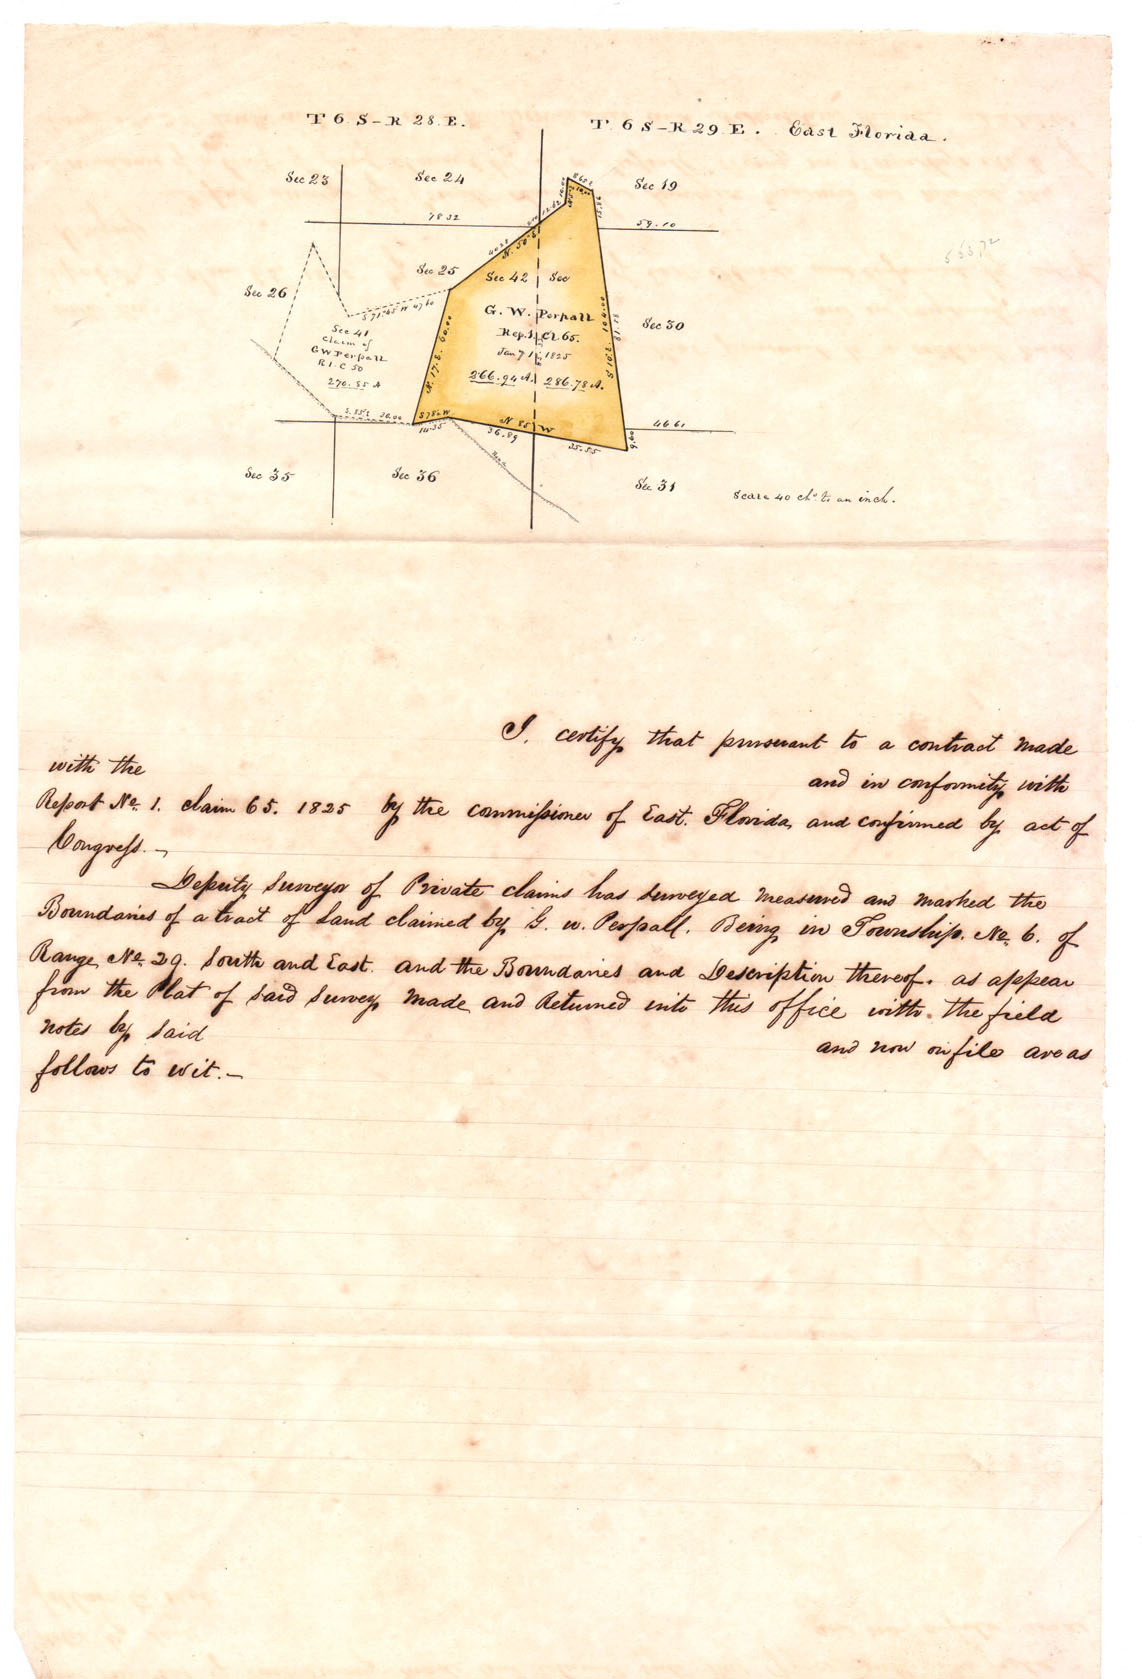 T 6 S - R 28 E.
T. 6 S - R 29 E. East Florida.
Sec 23
Sec 24
Sec 19
78 32
59.10
Sec 26
Sec 25
Sec 42
Sec
Sec 30
G. W. Perpall
Rep. 1 Cl 65.
Jany 1 1825
266.94 A.
286.78 A.
Sec 41
Claim of
G W Perpall
R 1. C 50
276.85 A
N. 17. E. 60.00
S 10. E 104.00
81.18
N 85 W
14.35
36.89
35.55
9.60
46 61
Sec 35
Sec 36
Sec 31
Scale 40 chs. to an inch.
I. certify that pursuant to a contract made
with the
and in conformity with
Report No. 1. claim 65. 1825 by the commissioner of East. Florida, and confirmed by act of
Congress.—
Deputy Surveyor of Private claims has surveyed measured and marked the
Boundaries of a tract of Land claimed by G. W. Perpall. Being in Township. No. 6. of
Range No. 29. South and East. and the Boundaries and Description thereof. as appear
from the Plat of said survey made and Returned into this office with the field
notes by said
and now on file are as
follows to wit.—